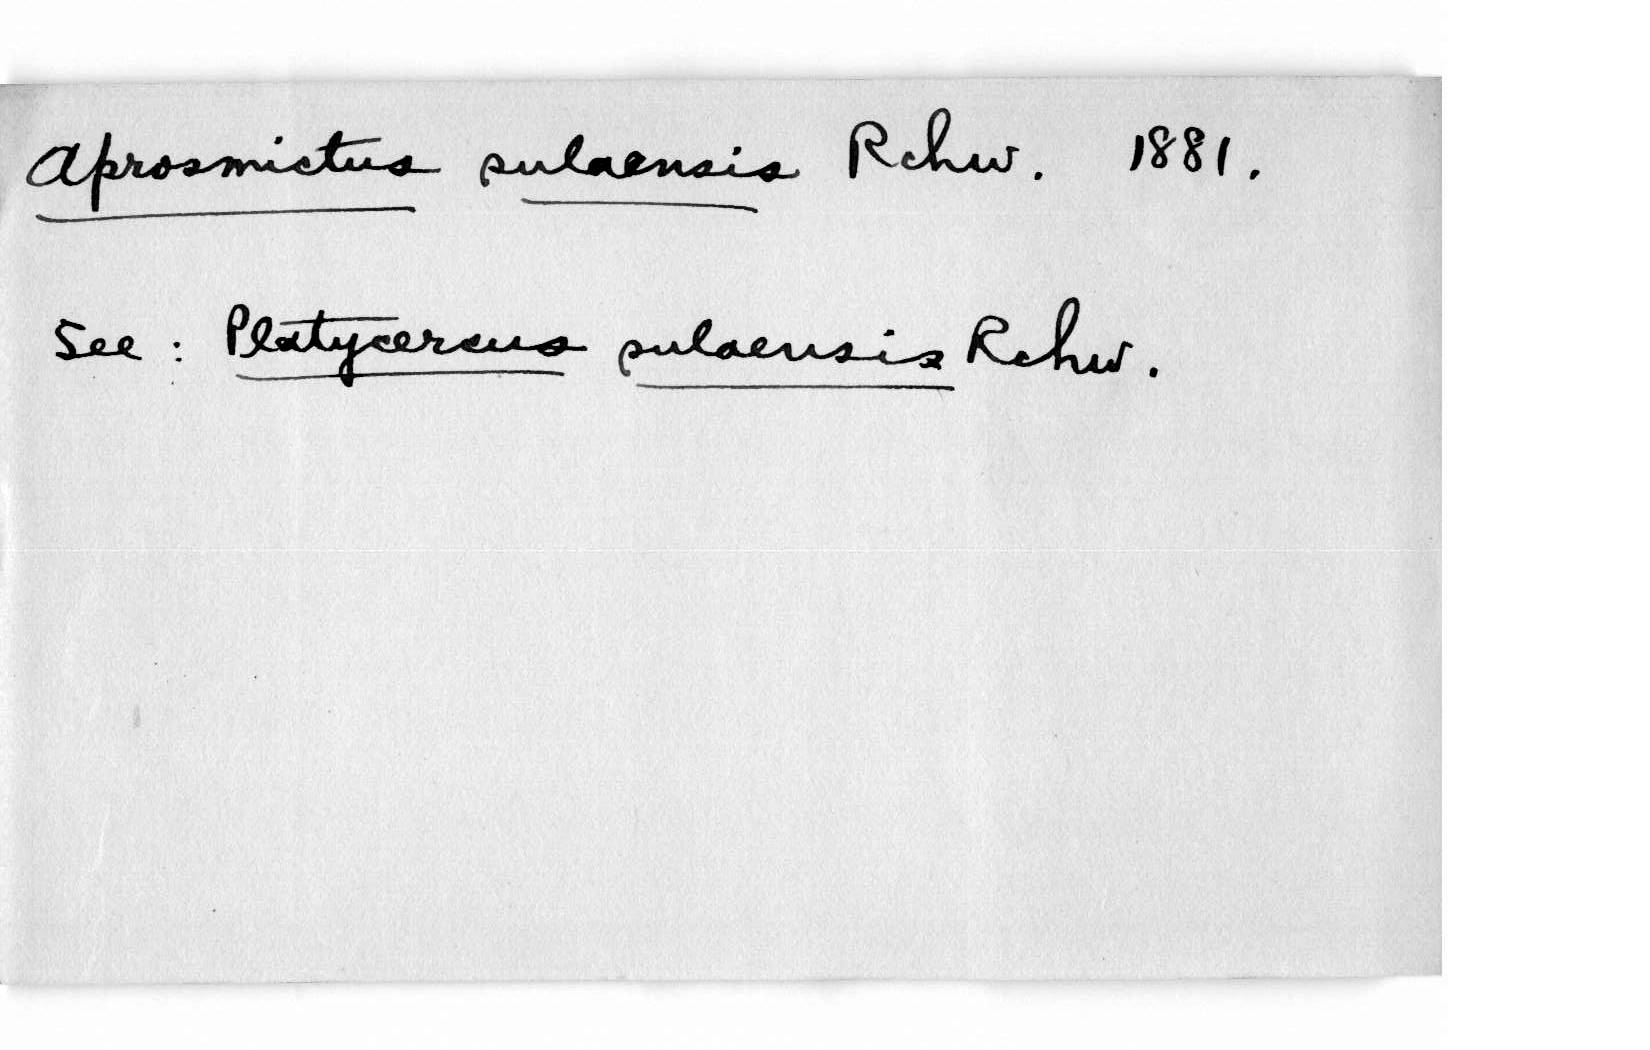 Aprosmictus sulaensis Rchw. 1881.
See : Platycercus sulaensis Rchw.